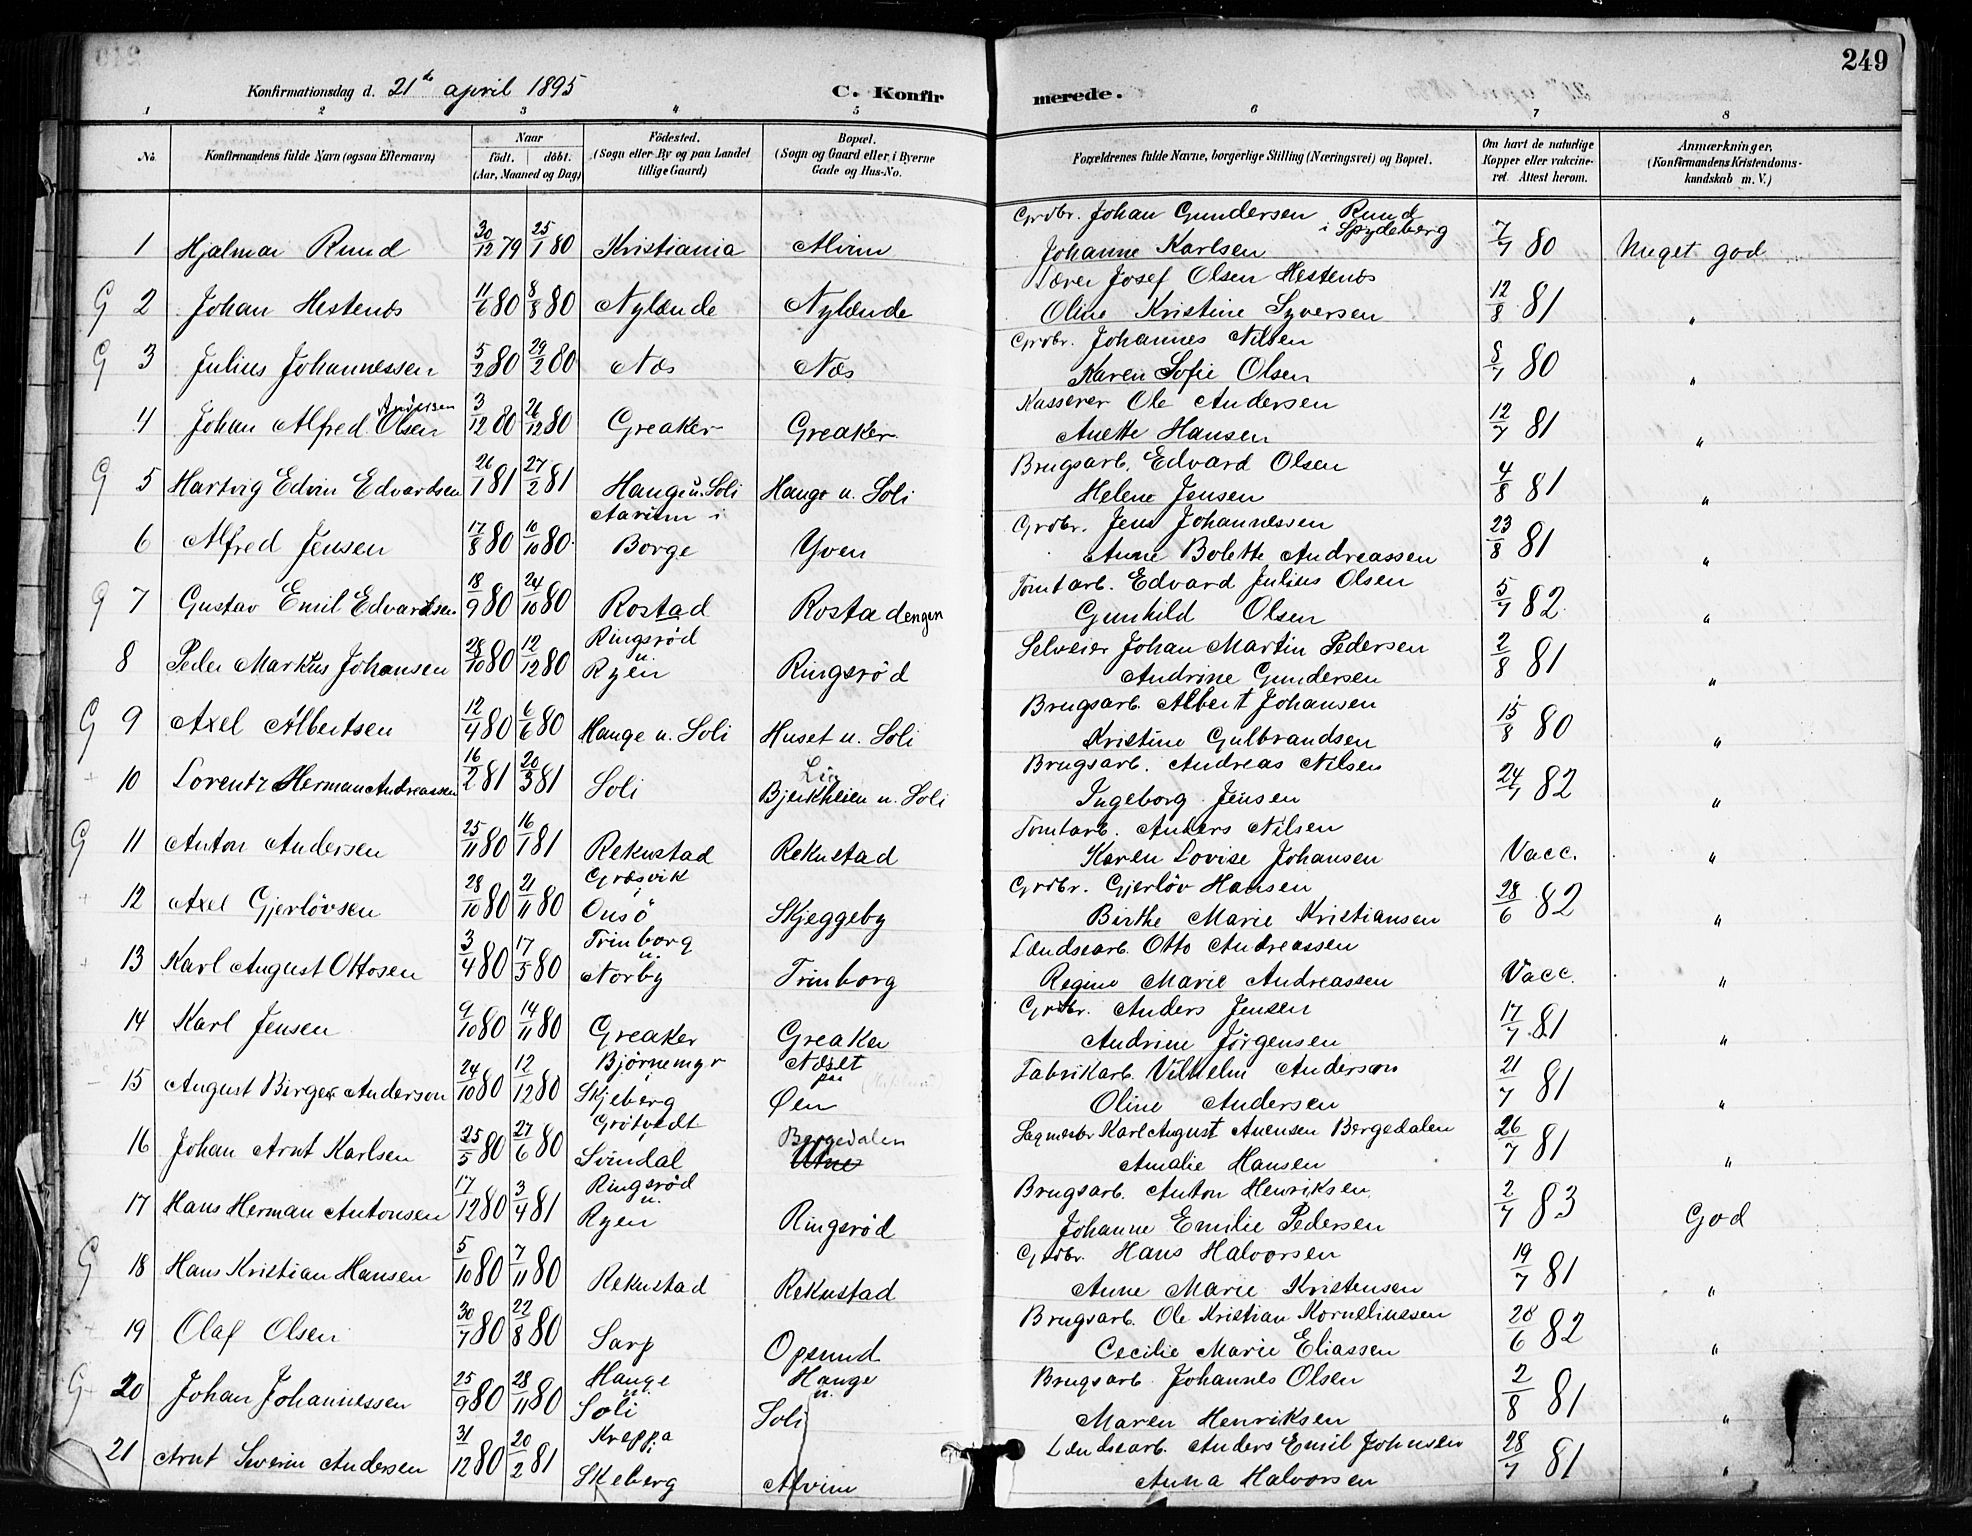 249
Konfirmationsdag d. 21de april 1895 C. Konfirmerede.
1 2 3 4 5 6 7 8
No. Konfirmandens fulde Navn (ogsaa Efternavn) Naar født. døbt. (Aar, Maaned og Dag) Fødested. (Sogn eller By og paa Landet tillige Gaard) Bopæl. (Sogn og Gaard eller i Byerne Gade og Hus-No. Forældrenes fulde Navne, borgerlige Stilling (Næringsvei) og Bopæl. Om havt de naturlige Kopper eller vakcineret. Attest herom. Anmærkninger. (Konfirmandens Kristendomskundskab m. V.)
1 Hjalmar Rund 30/12 79 25/1 80 Kristiania Alvim Grdbr. Johan Gundersen Rund i Spydeberg
Johanne Karlsen 7/7 80 Meget god
G 2 Johan Hestenes 11/6 80 8/8 80 Nylænde Nylænde Lærer Josef Olsen Hestenes
Oline Kristine Syversen 12/8 81 "
G 3 Julius Johannessen 5/2 80 29/2 80 Næs Næs Grdbr. Johannes Nilsen
Karen Sofie Olsen 5/7 80 "
4 Johan Alfred Olsen Andersen 3/12 80 26/12 80 Greaker Greaker Kasserer Ole Andersen
Anette Hansen 12/7 81 "
G 5 Hartvig Edvin Edvardsen 26/1 81 27/2 81 Hauge u. Soli Hauge u. Soli Brugsarb. Edvard Olsen
Helene Jensen 4/8 81 "
6 Alfred Jensen 17/8 80 10/10 80 i Borge Yven Grdbr. Jens Johannessen
Anne Bolette Andreassen 23/8 81 "
G 7 Gustav Emil Edvardsen 18/9 80 24/10 80 Rostad Rostadengen Tomtarb. Edvard Julius Olsen
Gunhild Olsen 5/7 82 "
8 Peder Markus Johansen 28/10 80 12/12 80 Ringsrød u. Ryen Ringsrød Selveier Johan Martin Pedersen
Andrine Gundersen 2/8 81 "
G 9 Axel Albertsen 12/4 80 6/6 80 Hauge u. Soli Huset u. Soli Brugsarb. Albert Johansen
Kristine Gulbrandsen 15/8 80 "
10 Lorentz Herman Andreassen 16/2 81 20/3 81 Soli Lin Bjerkheien u. Soli Brugsarb. Andreas Nilsen
Ingeborg Jensen 24/7 82 "
G 11 Anton Andersen 25/11 80 16/1 81 Rekustad Rekustad Tomtarb. Anders Nilsen
Karen Lovise Johansen Vacc. "
12 Axel Gjerløvsen 28/10 80 21/11 80 Græsvik i Onsø Skjeggeby Grdbr. Gjerløv Hansen
Birthe Marie Kristiansen 28/6 82 "
13 Karl August Ottosen 3/4 80 17/5 80 Trinborg u. Nørby Trinborg Lændsearb. Otto Andreassen
Regine Marie Andreassen Vacc. "
14 Karl Jensen 9/10 80 14/11 80 Greaker Greaker Grdbr. Anders Jensen
Andrine Jørgensen 17/7 81 "
15 August Birger Anderson 24/10 80 12/12 80 Bjørnemyr i Skjeberg Næset paa Øen Fabrikarb. Vilhelm Anderson
Oline Andersen 21/7 81 "
16 Johan Arnt Karlsen 25/5 80 27/6 80 Grøtvedt i Svindal Bergedalen Sagmester Karl August Auensen Bergedalen
Amalie Hansen 26/7 81 "
17 Hans Herman Antonsen 17/12 80 3/4 81 Ringsrød u. Ryen Ringsrød Brugsarb. Anton Henriksen
Johanne Emilie Pedersen 2/7 83 God
G 18 Hans Kristian Hansen 5/10 80 7/11 80 Rekustad Rekustad Grdbr. Hans Halvorsen
Anne Marie Kristensen 19/7 81 "
19 Olaf Olsen 30/7 80 22/8 80 Sarp Opsund Brugsarb. Ole Kristian Korneliussen
Cecilie Marie Eliassen 28/6 82 "
G 20 Johan Johannessen 25/9 80 28/11 80 Hauge u. Soli Hauge u. Soli Brugsarb. Johannes Olsen
Maren Henriksen 2/8 81 "
21 Arnt Severin Andersen 31/12 80 20/2 81 Kreppa i Skeberg Alvim Lændsearb. Anders Emil Johnsen
Anna Halvorsen 28/7 81 "